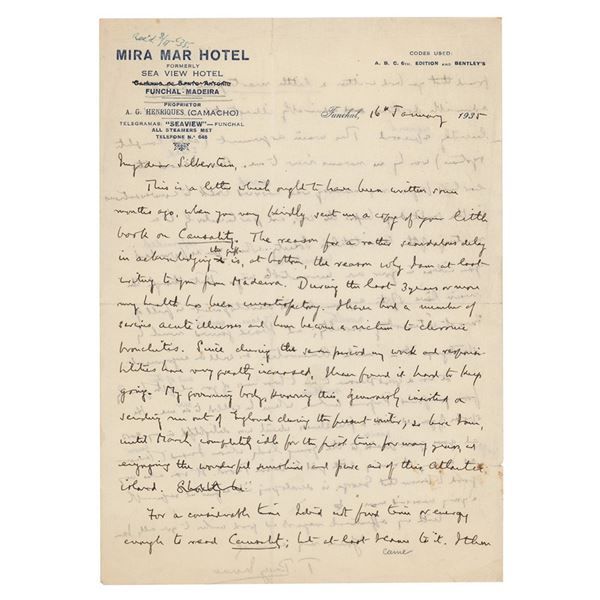 Rec'd 9/II-35.
MIRA MAR HOTEL
FORMERLY
SEA VIEW HOTEL
FUNCHAL-MADEIRA
PROPRIETOR
A. G. HENRIQUES (CAMACHO)
TELEGRAMAS: "SEAVIEW"—FUNCHAL
ALL STEAMERS MET
TELEFONE N.º 646
CODES USED:
A. B. C. 6TH. EDITION AND BENTLEY'S
Funchal, 16th January 1935
My dear Silberstein,
This is a letter which ought to have been written some
months ago, when you very kindly sent me a copy of your little
book on Causality. The reason for a rather scandalous delay
in acknowledging the gift is, at bottom, the reason why I am at last
writing to you from Madeira. During the last 3 years or more
my health has been unsatisfactory. I have had a number of
serious acute illnesses and have become a victim to chronic
bronchitis. Since during the same period my work and responsi-
bilities have very greatly increased, I have found it hard to keep
going. My governing body, knowing this, generously insisted on
sending me out of England during the present winter; so here I am,
until March, completely idle for the first time for many years, &
enjoying the wonderful sunshine and pure air of this Atlantic
island.
For a considerable time I did not find time or energy
enough to read Causality; but at last I came to it. I then
came